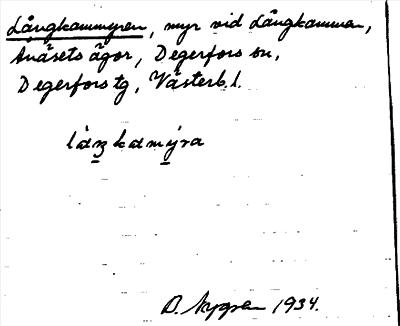 Långkammyren, myr vid Långkammen,
Anäsets ägor, Degerfors sn,
Degerfors tg, Västerb. l.
låŋkamýra
D. Nygren 1934.